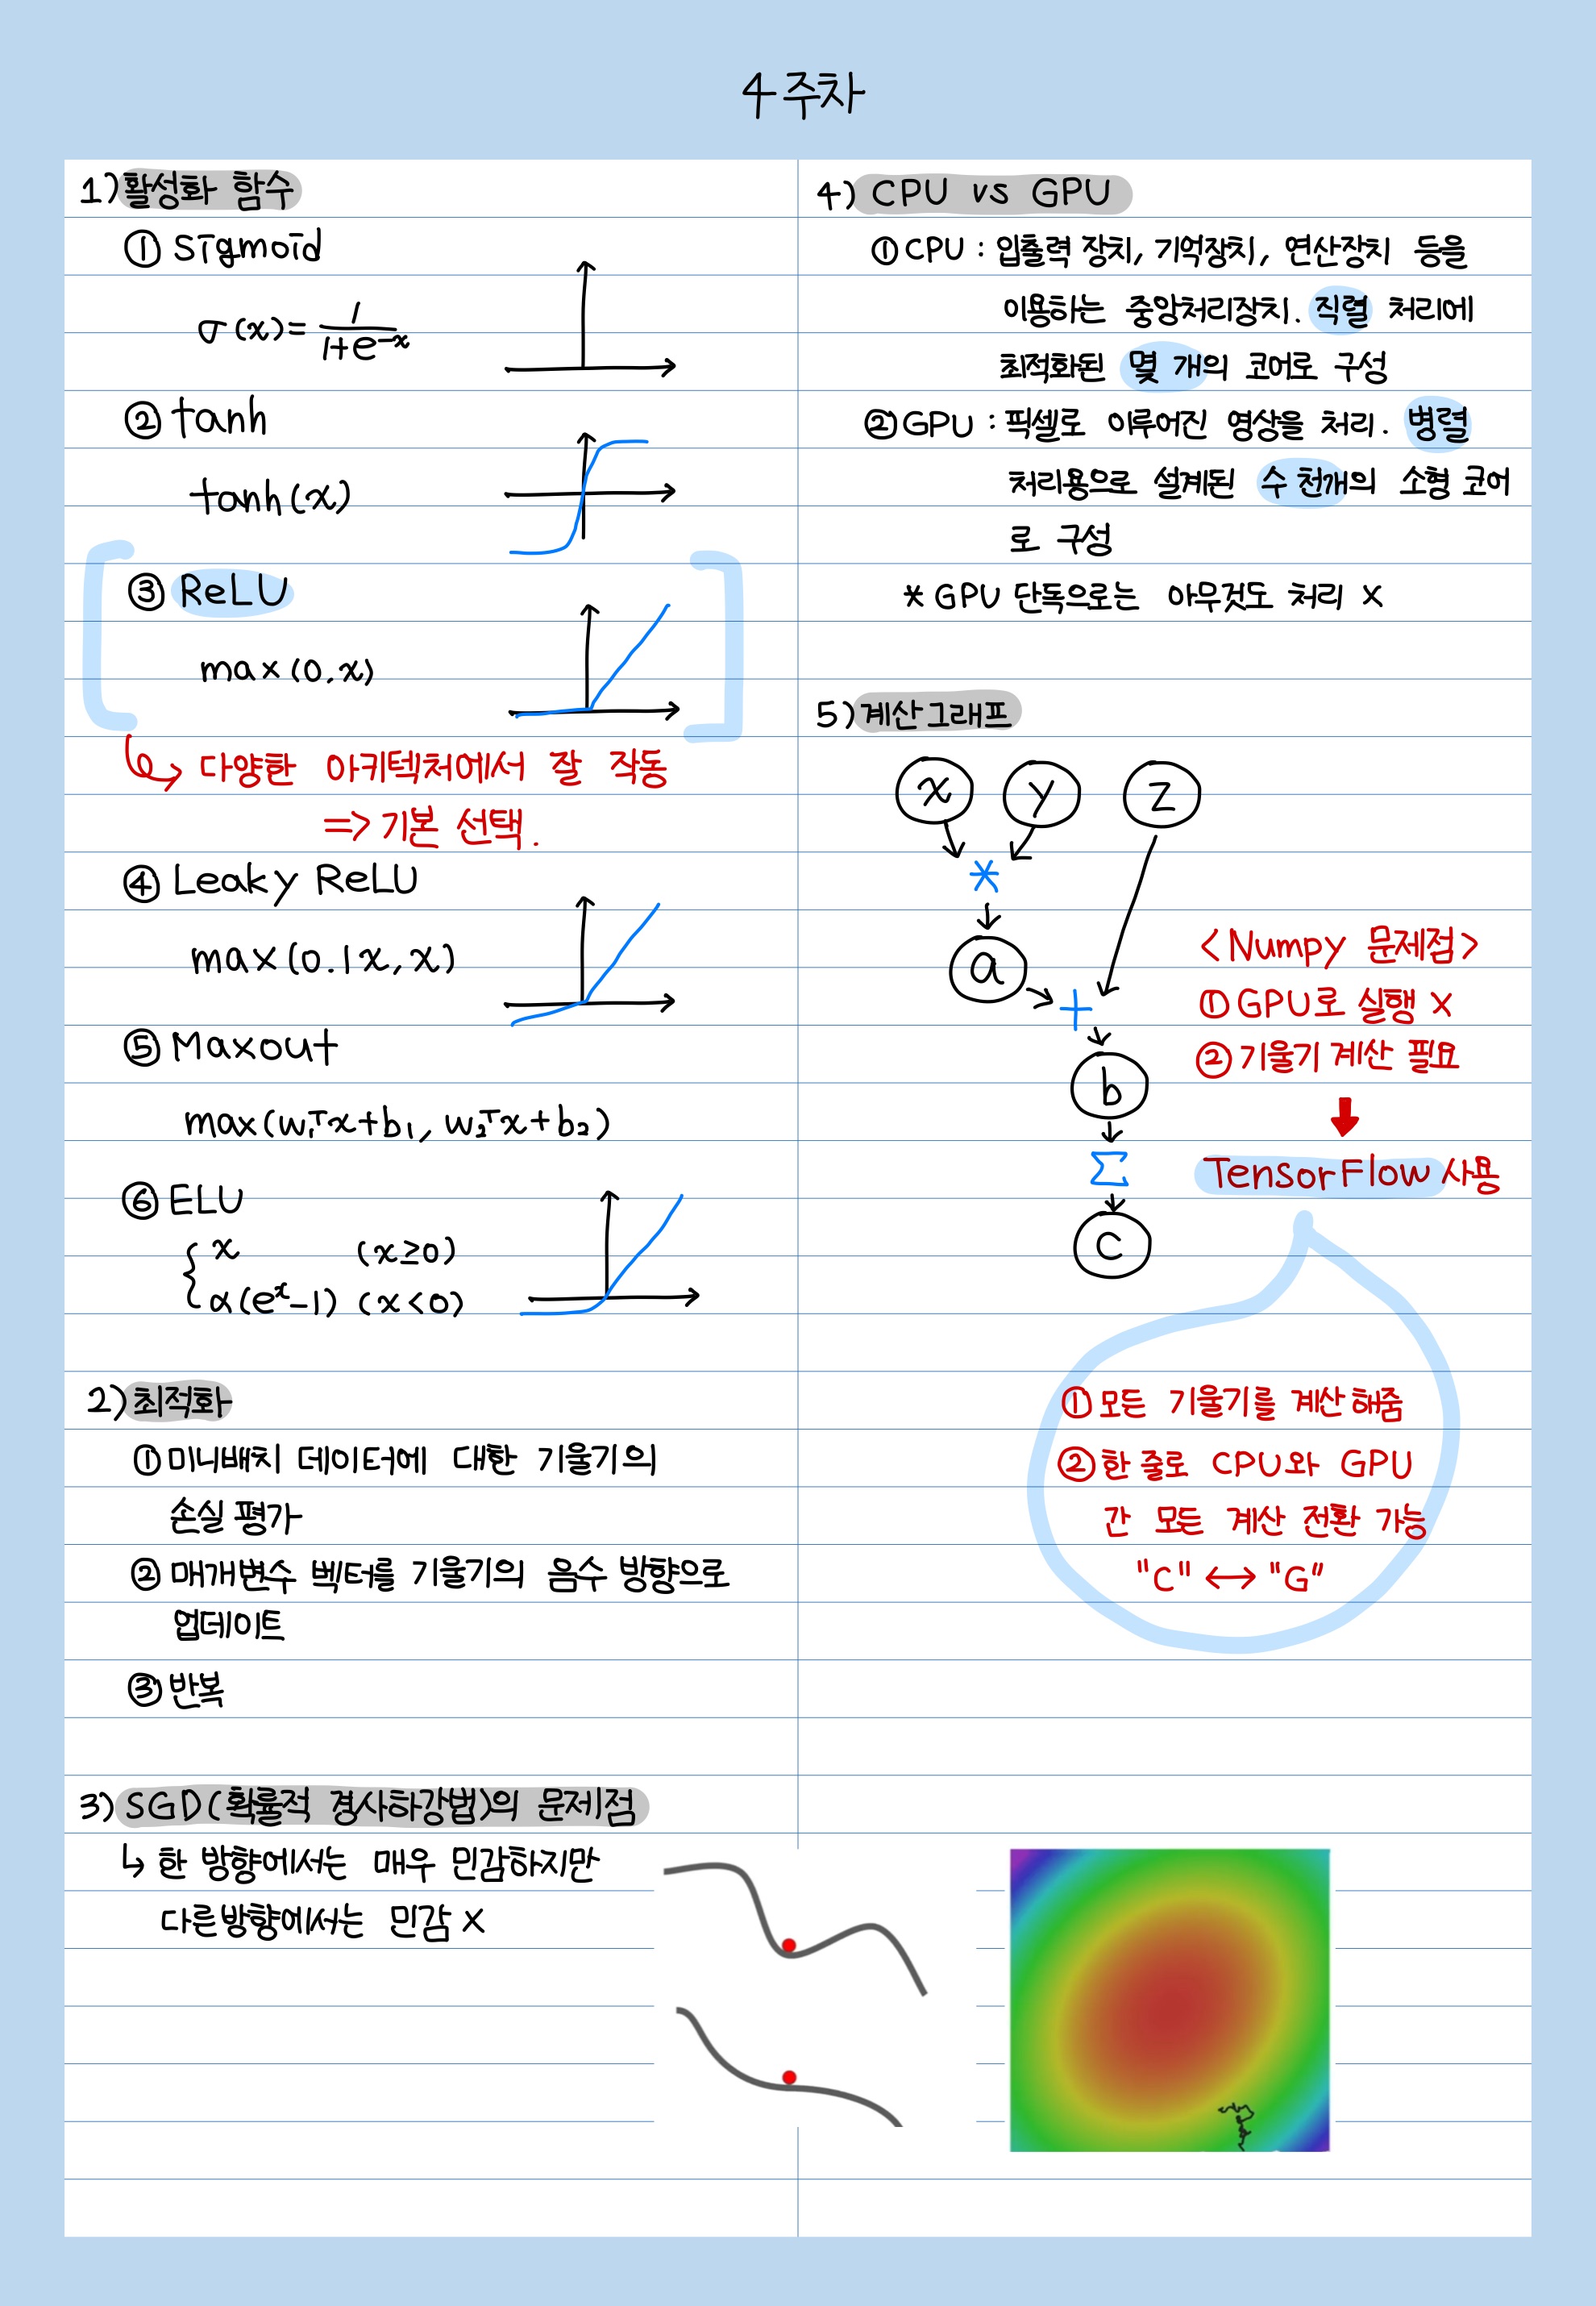 4주차
1) 활성화 함수
① Sigmoid
σ(x) = 1/(1+e^-x)
② tanh
tanh(x)
③ ReLU
max(0.x)
↳ 다양한 아키텍처에서 잘 작동
=> 기본 선택.
④ Leaky ReLU
max(0.1x, x)
⑤ Maxout
max(w₁ᵀx+b₁, w₂ᵀx+b₂)
⑥ ELU
{ x (x≥0)
α(e^x-1) (x<0)
2) 최적화
① 미니배치 데이터에 대한 기울기의
손실 평가
② 매개변수 벡터를 기울기의 음수 방향으로
업데이트
③ 반복
3) SGD(확률적 경사하강법)의 문제점
↳ 한 방향에서는 매우 민감하지만
다른방향에서는 민감 X
4) CPU vs GPU
① CPU : 입출력 장치, 기억장치, 연산장치 등을
이용하는 중앙처리장치. 직렬 처리에
최적화된 몇 개의 코어로 구성
② GPU : 픽셀로 이루어진 영상을 처리. 병렬
처리용으로 설계된 수 천개의 소형 코어
로 구성
* GPU 단독으로는 아무것도 처리 X
5) 계산그래프
x y z
*
a
+
b
Σ
c
<Numpy 문제점>
① GPU로 실행 X
② 기울기 계산 필요
TensorFlow 사용
① 모든 기울기를 계산해줌
② 한 줄로 CPU와 GPU
간 모든 계산 전환 가능
"C" ↔ "G"